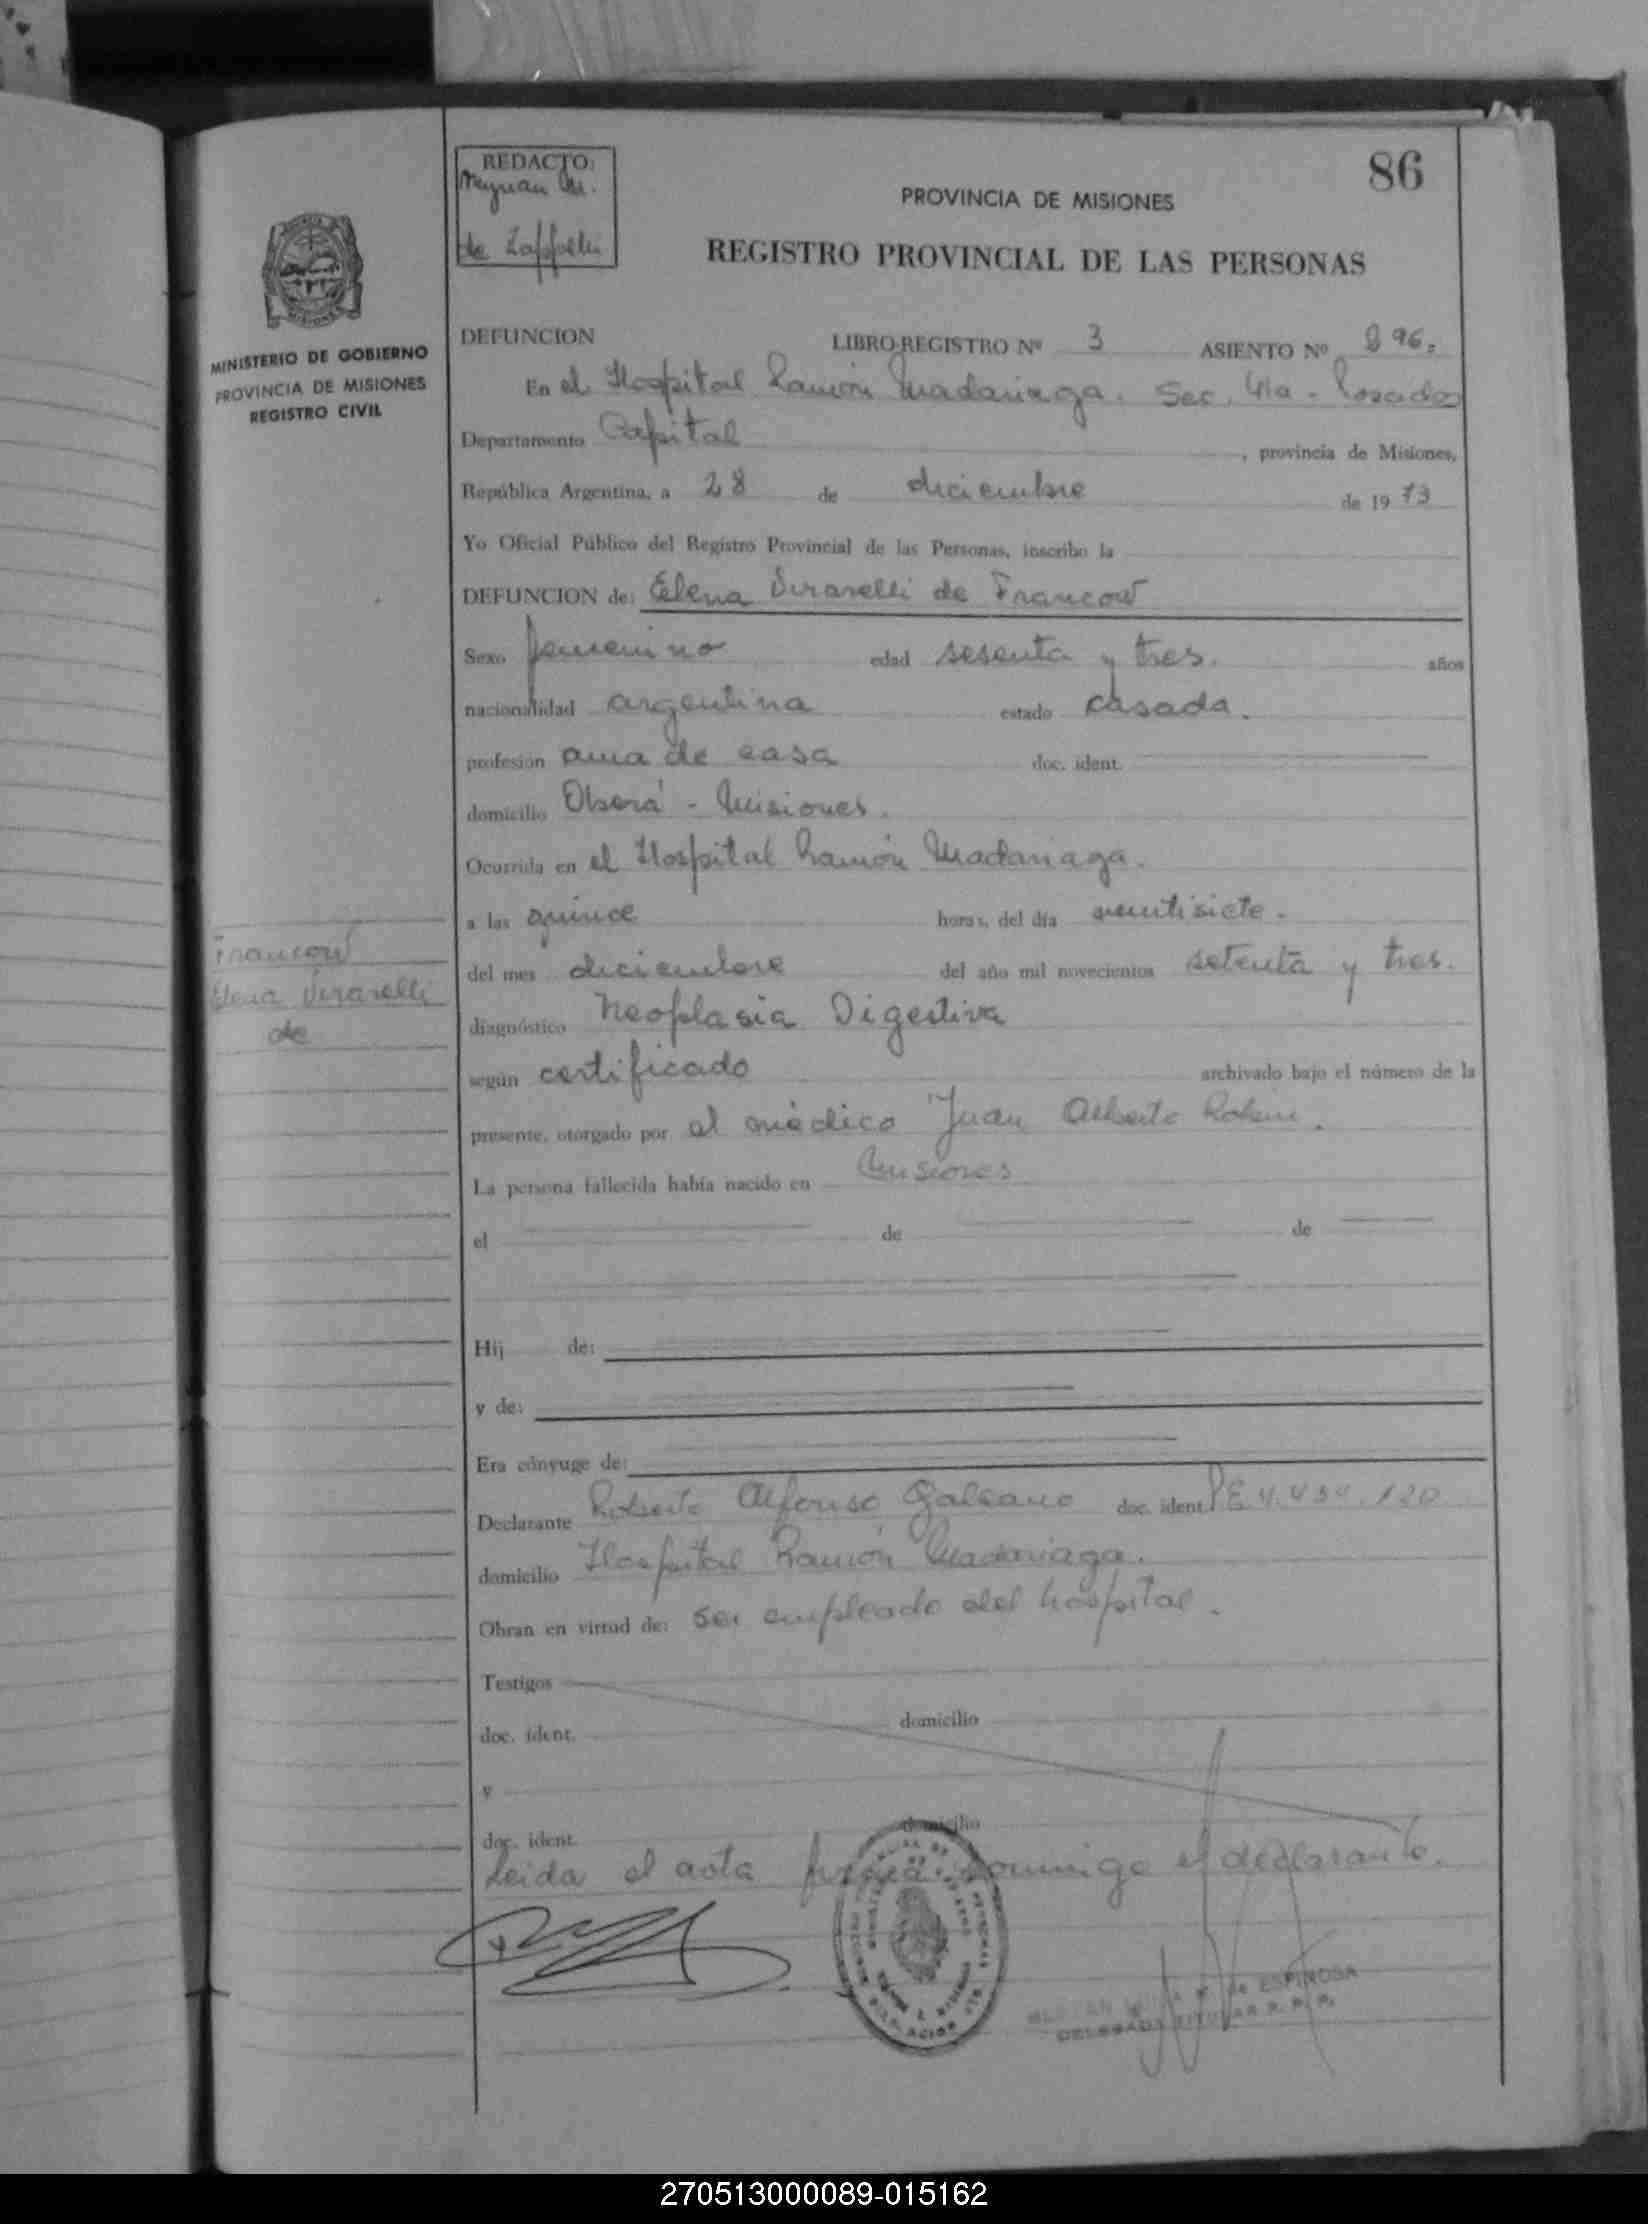 86
REDACTO:
de
PROVINCIA DE MISIONES
REGISTRO PROVINCIAL DE LAS PERSONAS
MINISTERIO DE GOBIERNO
PROVINCIA DE MISIONES
REGISTRO CIVIL
DEFUNCION LIBRO-REGISTRO Nº 3 ASIENTO Nº 896
En el Hospital Ramón Madariaga. Sec. 4ta - Posadas
Departamento Capital, provincia de Misiones,
República Argentina, a 28 de diciembre de 1973
Yo Oficial Público del Registro Provincial de las Personas, inscribo la
DEFUNCION de: Elena Virarelli de Francow
Sexo femenino edad sesenta y tres. años
nacionalidad argentina estado casada.
profesión ama de casa doc. ident.
domicilio Oberá - Misiones.
Ocurrida en el Hospital Ramón Madariaga.
a las quince horas, del día veintisiete.
Francow
Elena Virarelli
de
del mes diciembre del año mil novecientos setenta y tres.
diagnóstico Neoplasia Digestiva
según certificado archivado bajo el número de la
presente, otorgado por el médico Juan Alberto
La persona fallecida había nacido en Misiones
el de de
Hij de:
y de:
Era cónyuge de:
Declarante Roberto Alfonso Galeano doc. ident. 4.434.120
domicilio Hospital Ramón Madariaga.
Obran en virtud de: ser empleado del hospital.
Testigos
doc. ident. domicilio
y
doc. ident. domicilio
Leida el acta firma conmigo el declarante.
de ESPINOSA
DELEGADA TITULAR R. P. P.
270513000089-015162